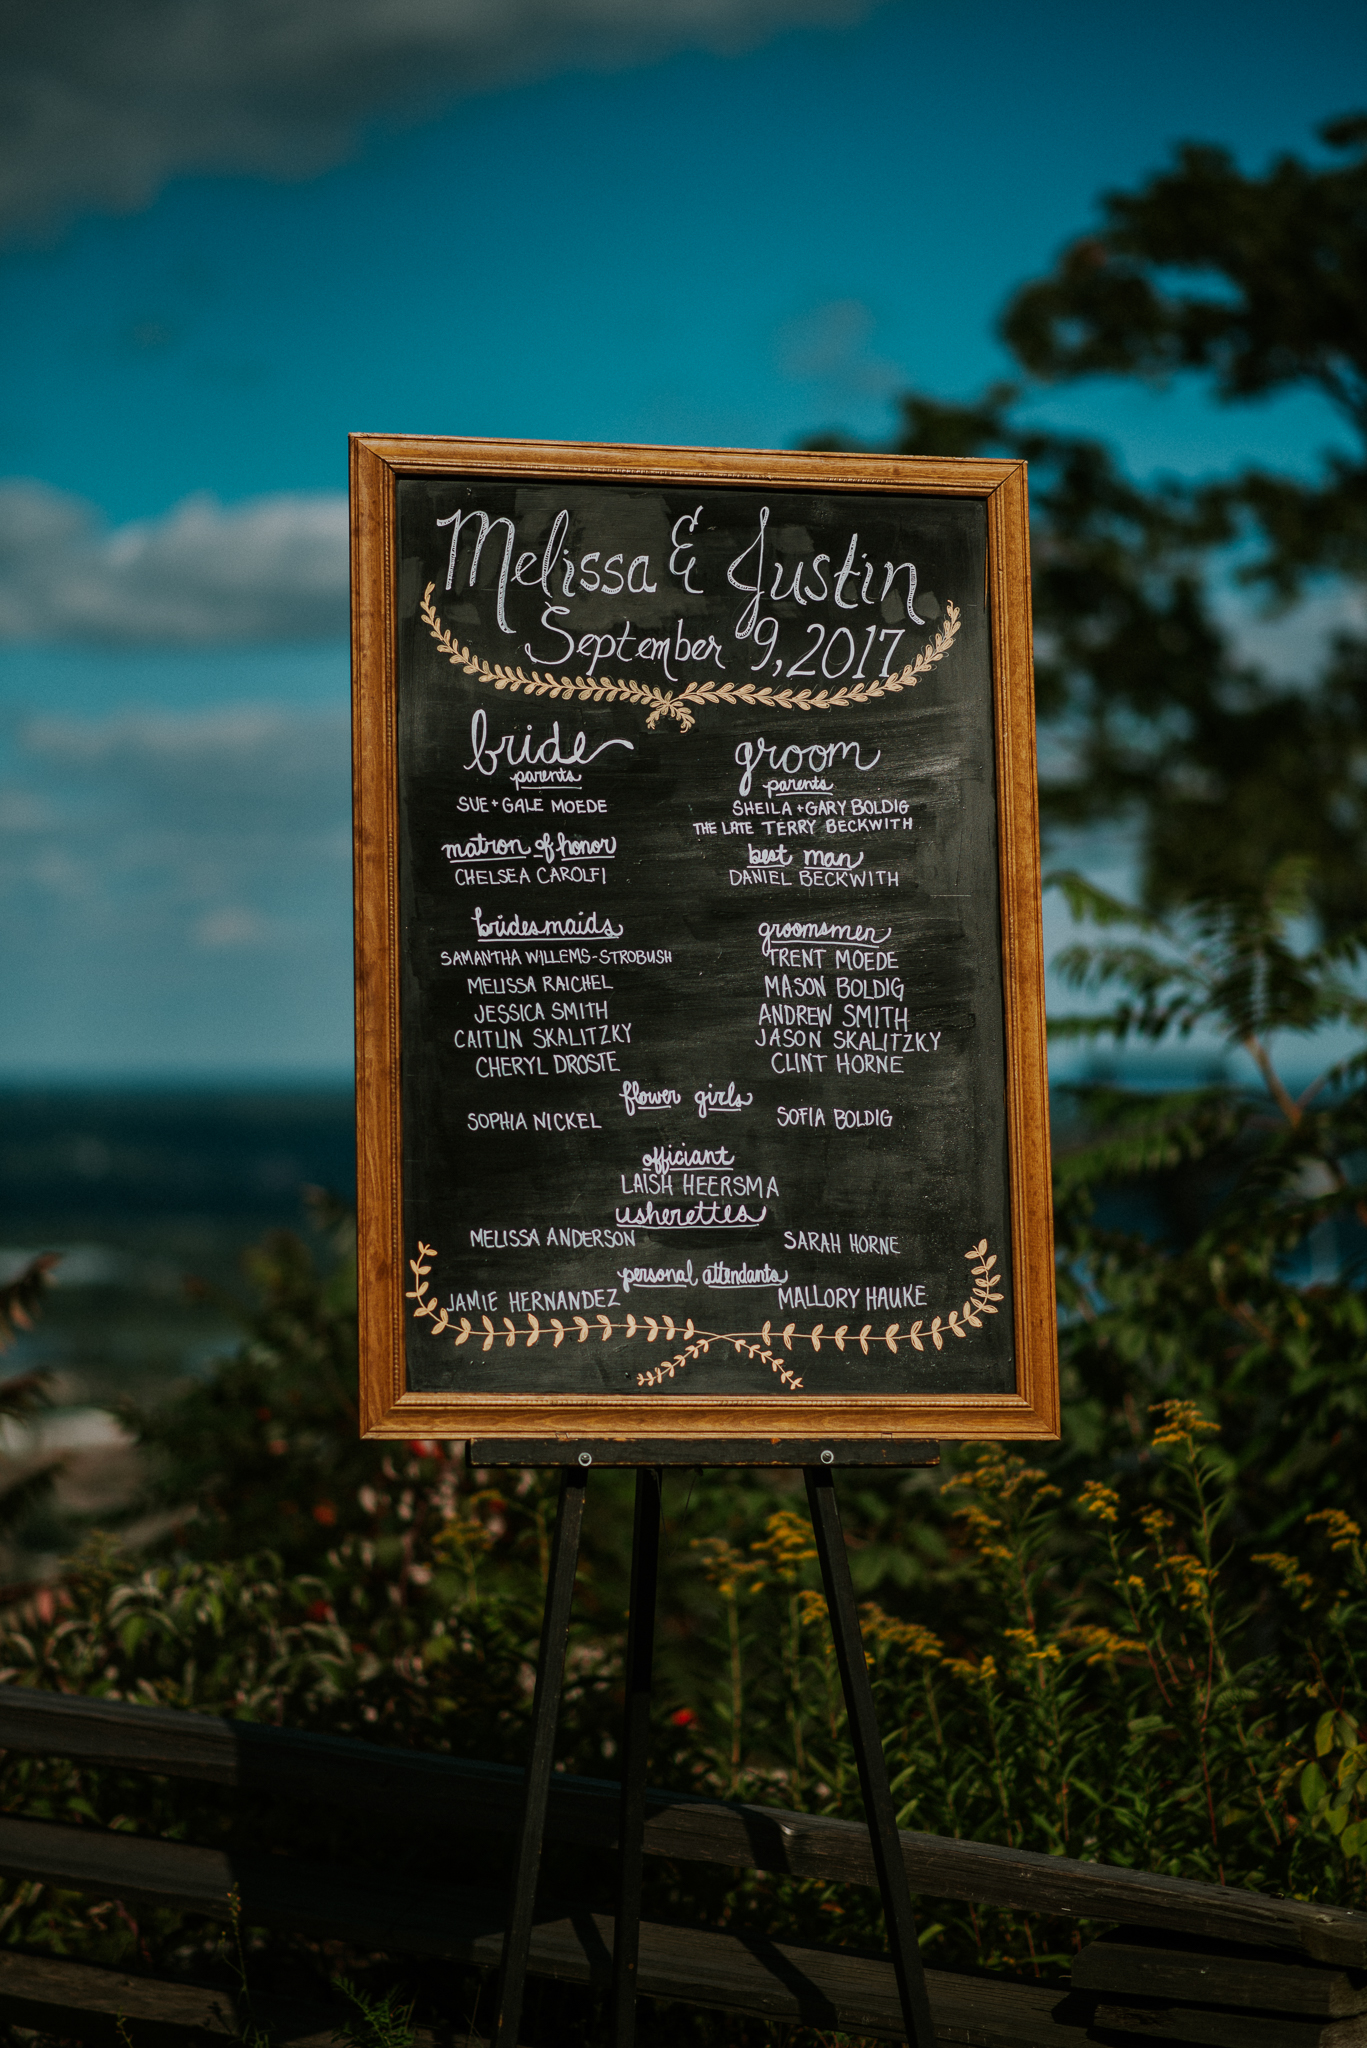 Melissa & Justin
September 9, 2017
bride
parents
SUE + GALE MOEDE
matron of honor
CHELSEA CAROLFI
bridesmaids
SAMANTHA WILLEMS-STROBUSH
MELISSA RAICHEL
JESSICA SMITH
CAITLIN SKALITZKY
CHERYL DROSTE
groom
parents
SHEILA + GARY BOLDIG
THE LATE TERRY BECKWITH
best man
DANIEL BECKWITH
groomsmen
TRENT MOEDE
MASON BOLDIG
ANDREW SMITH
JASON SKALITZKY
CLINT HORNE
flower girls
SOPHIA NICKEL SOFIA BOLDIG
officiant
LAISH HEERSMA
usherettes
MELISSA ANDERSON SARAH HORNE
personal attendants
JAMIE HERNANDEZ MALLORY HAUKE